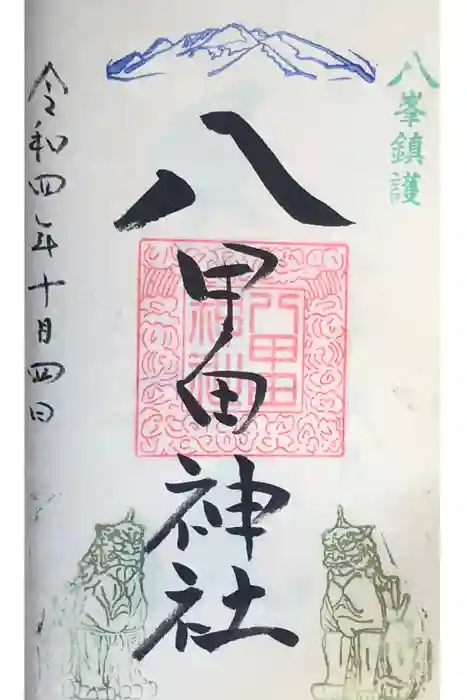 八峯鎮護
八甲田神社
八甲田
神社
令和四年十月四日